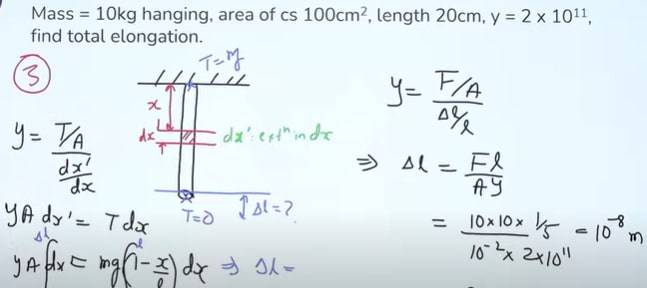 Mass = 10kg hanging, area of cs 100cm², length 20cm, y = 2 x 10¹¹,
find total elongation.
③
T=mg
x
dx
dx': extⁿ in dx
T=0
Δl=?
y = T/A / dx'/dx
YA dx' = T dx
yA ∫dx = mg ∫(1-x/l) dx ⇒ Δl =
Δl
l
y = F/A / Δl/l
⇒ Δl = Fl / AY
= 10x10x 1/5 / 10⁻² x 2x10¹¹ = 10⁻⁸ m